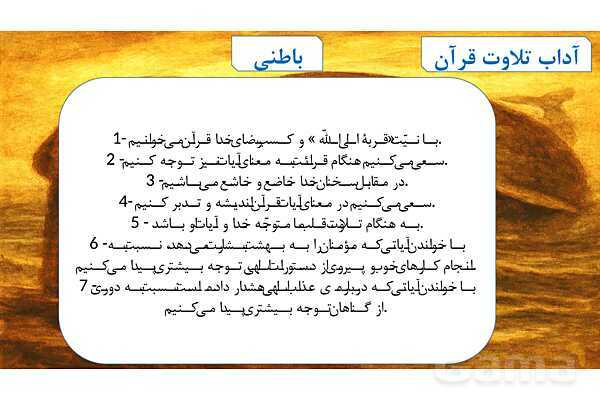 آداب تلاوت قرآن
باطنی
1- با نیّت «قربة الی الله» و کسب رضای خدا قرآن می‌خوانیم.
2- سعی می‌کنیم هنگام قرائت به معنای آیات نیز توجه کنیم.
3- در مقابل سخنان خدا خاضع و خاشع می‌باشیم.
4- سعی می‌کنیم در معنای آیات قرآن اندیشه و تدبر کنیم.
5- به هنگام تلاوت قلب ما متوجّه خدا و آیات او باشد.
6- با خواندن آیاتی که مؤمنان را به بهشت بشارت می‌دهد، نسبت به
انجام کارهای خوب و پیروی از دستورات الهی توجه بیشتری پیدا می‌کنیم
7- با خواندن آیاتی که درباره ی عذاب الهی هشدار داده است نسبت به دوری
از گناهان توجه بیشتری پیدا می‌کنیم.
Gama